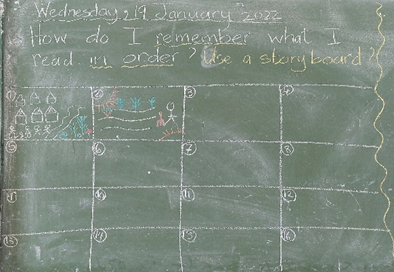 Wednesday 19 January 2022
How do I remember what I
read in order? Use a storyboard?
1 2 3 4
5 6 7 8
9 10 11 12
13 14 15 16